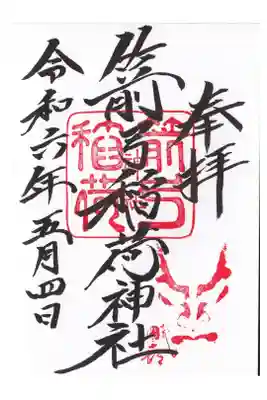 奉拝
箭弓稲荷神社
箭弓
稲荷
令和六年五月四日